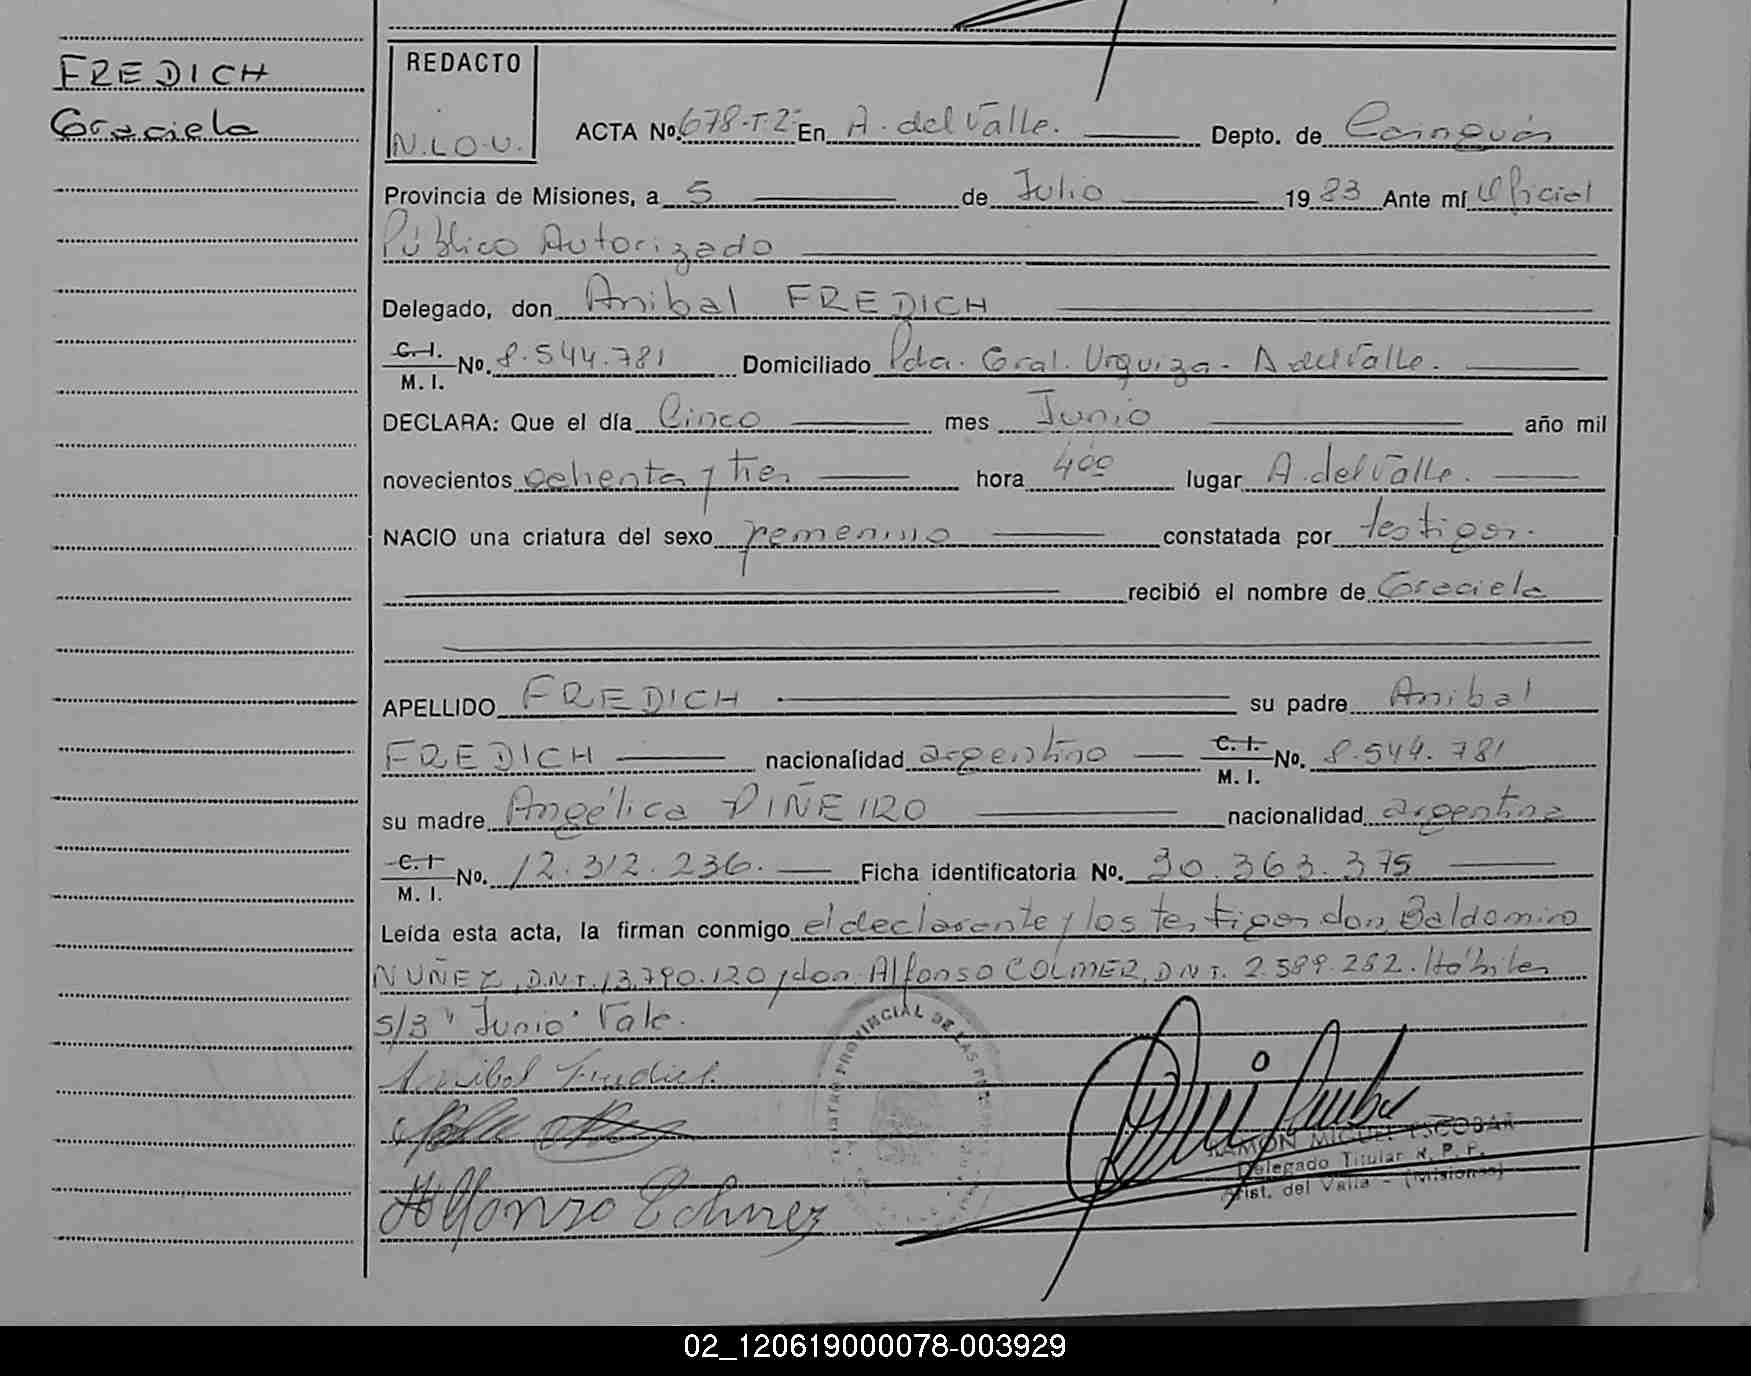 FREDICH
Graciela
REDACTO
N.L.O.V.
ACTA No. 678-T.2- En A. del Valle. Depto. de Cainguás
Provincia de Misiones, a 5 de Julio 1983 Ante mí Oficial
Público Autorizado
Delegado, don Anibal FREDICH
C. I. M. I. No. 8.544.781 Domiciliado Pda. Gral. Urquiza - A del Valle.
DECLARA: Que el día Cinco mes Junio año mil
novecientos ochenta y tres hora 4ºº lugar A. del Valle.
NACIO una criatura del sexo femenino constatada por testigos.
recibió el nombre de Graciela
APELLIDO FREDICH su padre Anibal
FREDICH nacionalidad argentino C. I. M. I. No. 8.544.781
su madre Angélica PIÑEIRO nacionalidad argentina
C. I M. I. No. 12.312.236. Ficha identificatoria No. 30.363.375
Leída esta acta, la firman conmigo el declarante y los testigos don Baldomiro
NUÑEZ, D.N.I. 13.790.120 y don Alfonso COLMER, D.N.I. 2.589.282. Hábiles
S/B "Junio" Vale.
Anibal Fredich
Alfonzo Colmer
PROVINCIAL DE LAS
RAMON MIGUEL ESCOBAR
Delegado Titular R. P. P.
Arist. del Valle - (Misiones)
02_120619000078-003929